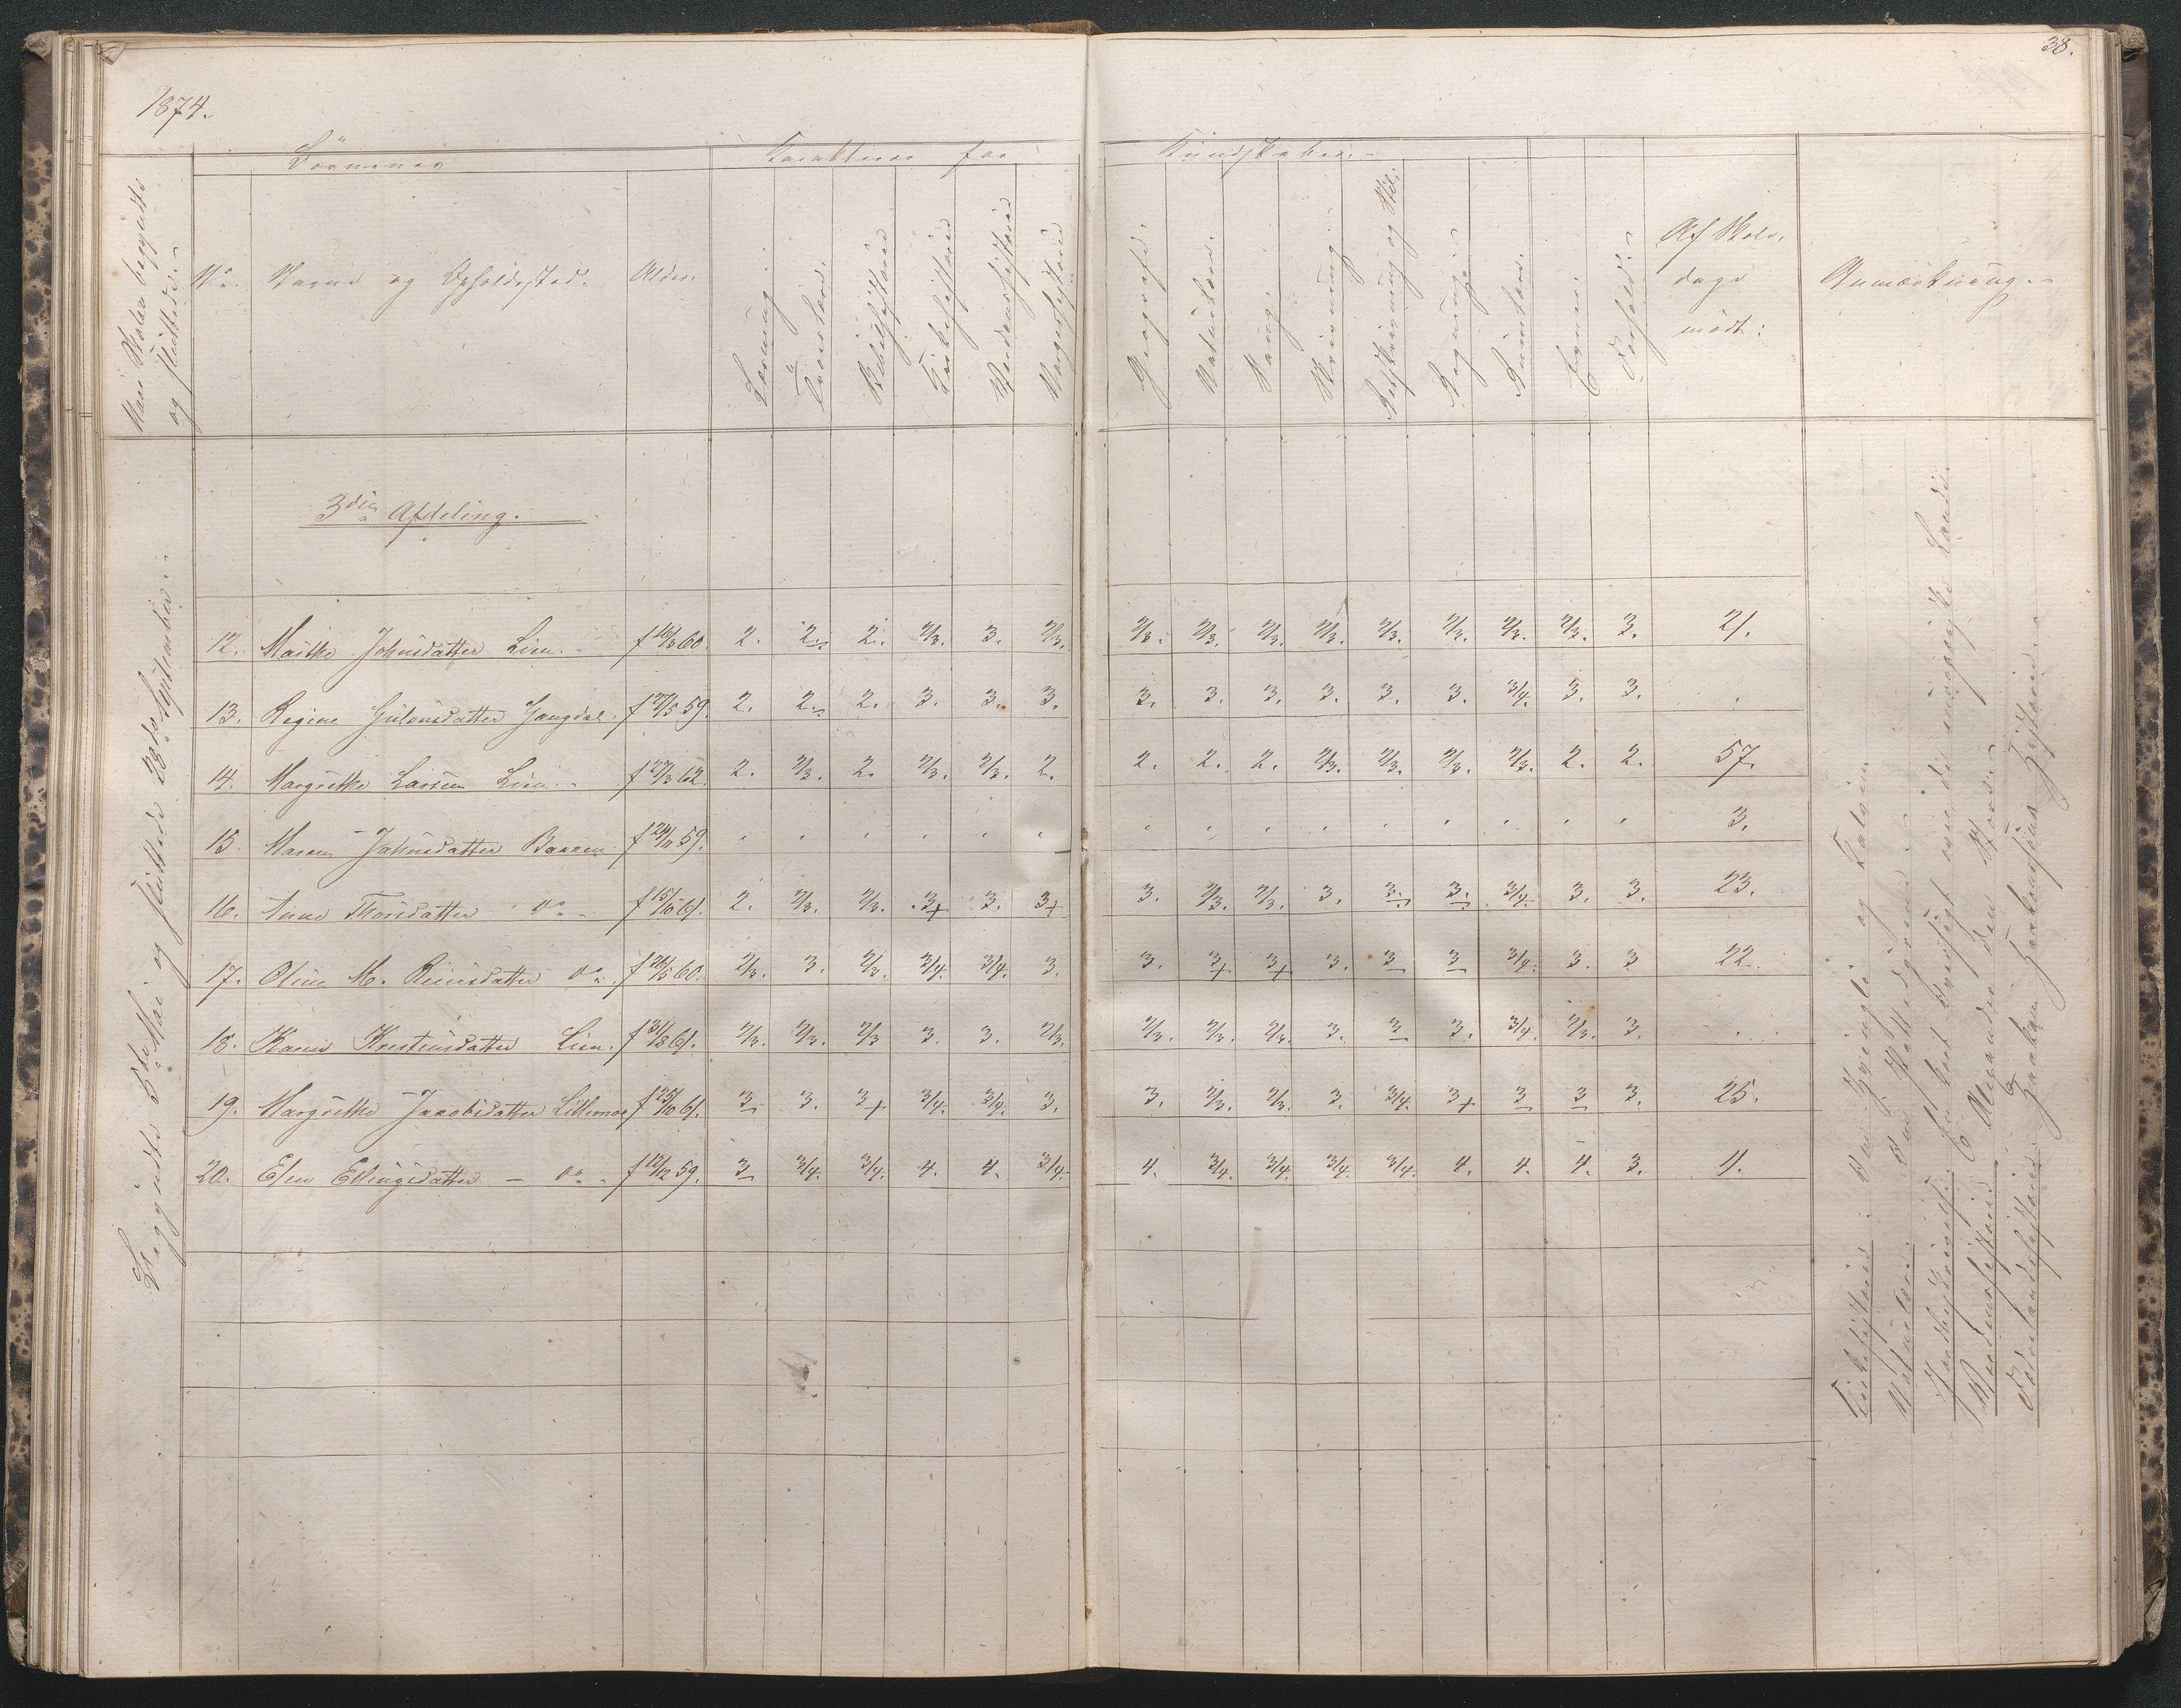 38.
1874.
Börnenes
Karakterer for
Kundskaber.
Naar Skolen begyndte
og sluttede.
No.
Navne og Opholdssted.
Alder.
Læsning.
Troeslære.
Bibelhistorie
Kirkehistorie
Verdenshistorie
Norgeshistorie
Geografi.
Naturlære.
Sang.
Skrivning
Retskrivning og Stil.
Regning.
Rumlære.
Evner.
Forhold.
Af Skole-
dage
mödt:
Anmærkning.
3die Afdeling.
Begyndte 5te Mai og sluttede 28de Septembr.
12. Marthe Johnsdatter Lien. f 18/3 60. 2. 2. 2. 2/3. 3. 2/3. 2/3. 2/3. 2/3. 2/3. 2/3. 2/3. 2/3. 2/3. 3. 21.
13. Regine Gulovsdatter f 27/5 59. 2. 2. 2. 3. 3. 3. 3. 3. 3. 3. 3. 3. 3/4. 3. 3. .
14. Margrethe Larsen Lien. f 27/3 62. 2. 2/3. 2. 2/3. 2/3. 2. 2. 2. 2. 2/3. 2/3. 2/3. 2/3. 2. 2. 57.
15. Maren Johnsdatter f 24/11 59. . . . . . . . . . . . . . . . 3.
16. Anne Thorsdatter do f 15/10 61. 2. 2/3. 2/3. 3+ 3. 3+ 3. 2/3. 2/3. 3. 3. 3. 3/4. 3. 3. 23.
17. Oline M. do f 26/5 60. 2/3. 3. 2/3. 3/4. 3/4. 3. 3. 3+ 3+ 3. 3 3 3/4. 3. 3 22.
18. Karen Kristensdatter Lien. f 31/8 61. 2/3. 2/3. 2/3 3. 3. 2/3. 2/3. 2/3. 2/3. 3. 3 3. 3/4. 2/3. 3. .
19. Margrethe Jacobsdatter Lillemoe f 25/10 61. 3 3. 3+ 3/4. 3/4. 3. 3. 2/3. 2/3. 3. 3/4. 3+ 3 3 3. 25.
20. Elen Ellingsdatter - do f 12/12 59. 3 3/4. 3/4. 4. 4. 3/4. 4. 3/4. 3/4. 3/4. 3/4. 4. 4. 4. 3. 4.
Kirkehistorie: Om Zvingli og Kalvin
Naturlære: Om
Jordbeskrivelse: En kort Oversigt over de europæiske Lande.
Verdenshistorie: Alexander den Store.
Fædrelandshistorie: Haakon Haakonssöns Historie.